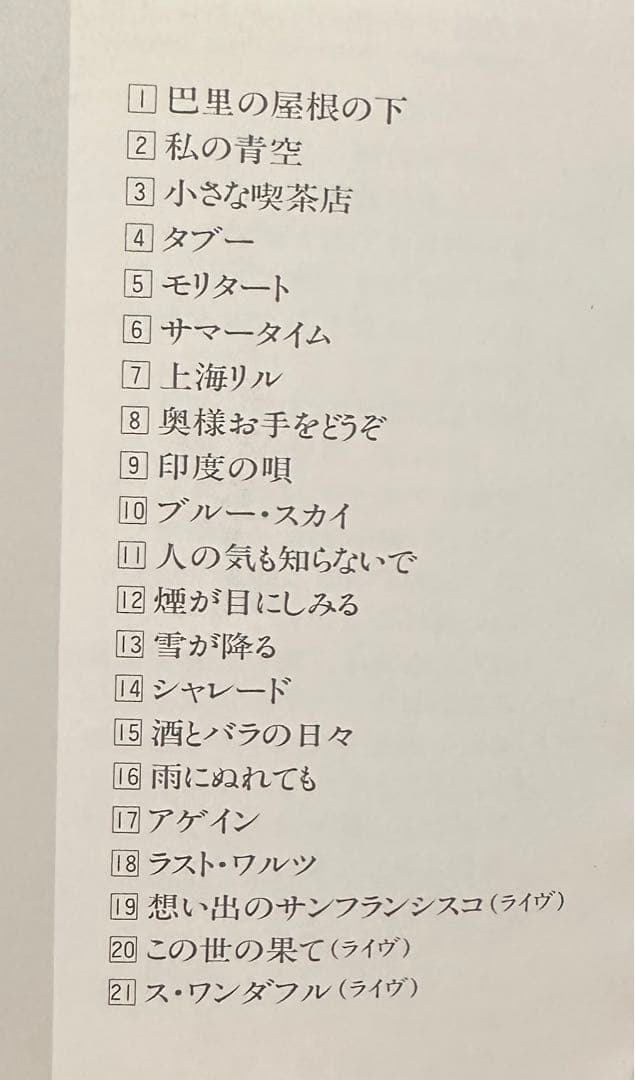 1 巴里の屋根の下
2 私の青空
3 小さな喫茶店
4 タブー
5 モリタート
6 サマータイム
7 上海リル
8 奥様お手をどうぞ
9 印度の唄
10 ブルー・スカイ
11 人の気も知らないで
12 煙が目にしみる
13 雪が降る
14 シャレード
15 酒とバラの日々
16 雨にぬれても
17 アゲイン
18 ラスト・ワルツ
19 想い出のサンフランシスコ(ライヴ)
20 この世の果て(ライヴ)
21 ス・ワンダフル(ライヴ)